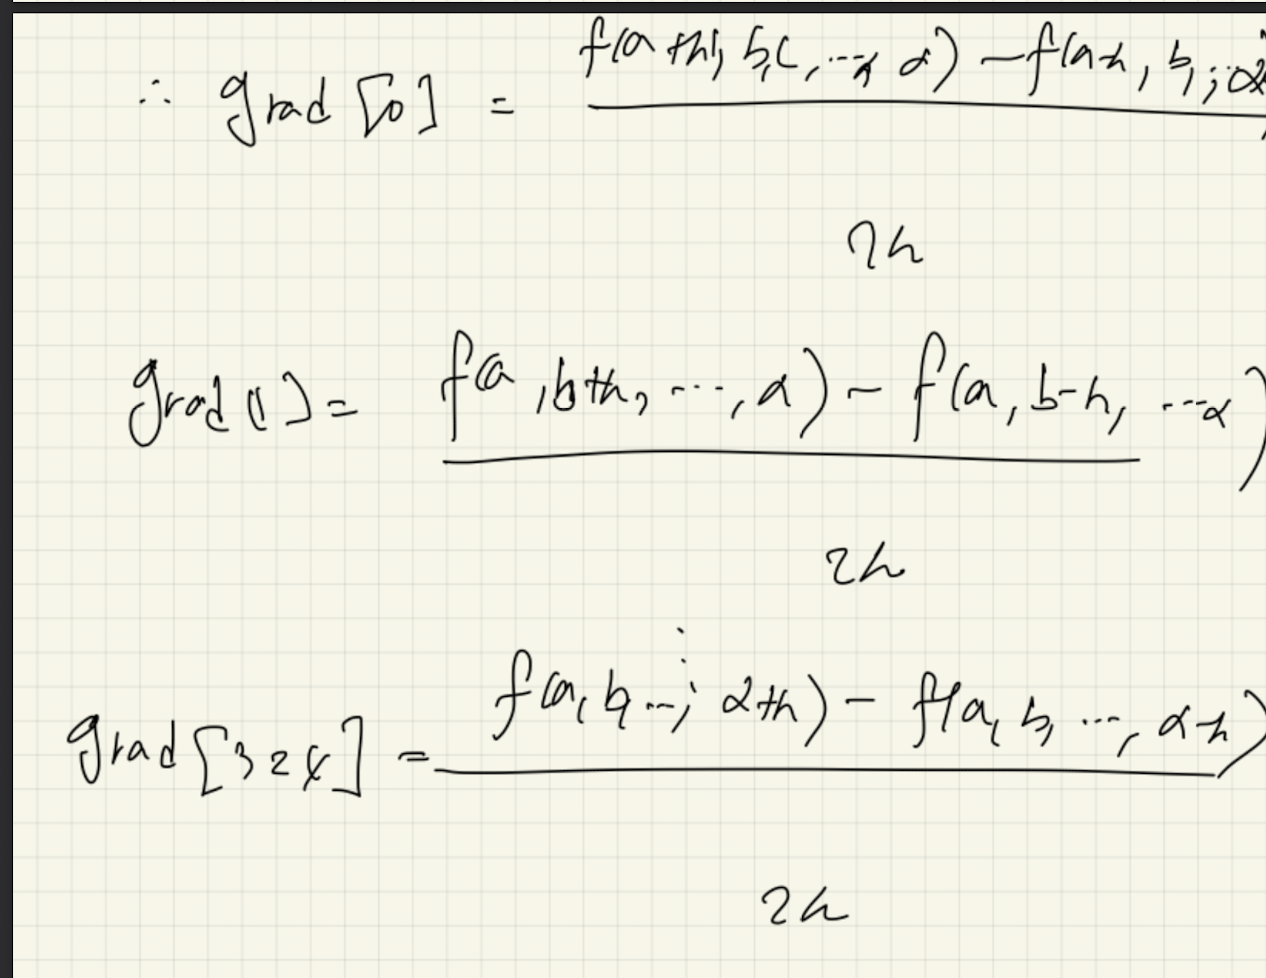 ∴ grad [0] = f(a+h, b, c, ..., α) - f(a-h, b, ; ..α
2h
grad [1] = f(a, b+h, ..., α) - f(a, b-h, ...α)
2h
grad [324] = f(a, b, ..., α+h) - f(a, b, ..., α-h)
2h